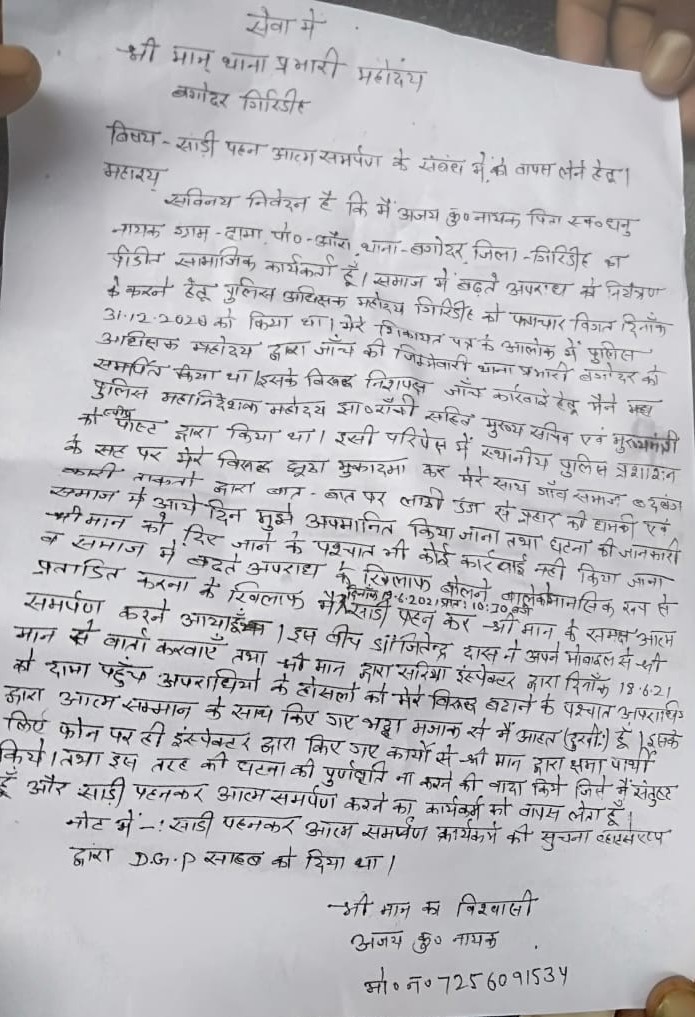 सेवा में
श्री मान् थाना प्रभारी महोदय
बगोदर गिरिडीह
विषय - साड़ी पहन आत्म समर्पण के संबंध में, को वापस लेने हेतु।
महाशय
सविनय निवेदन है कि मैं अजय कु० नायक पिता स्व० धनु
नायक ग्राम - दामा, पो० - औंरा, थाना - बगोदर, जिला - गिरिडीह का
पीडीत सामाजिक कार्यकर्ता हूँ। समाज में बढ़ते अपराध को नियंत्रण
के करने हेतू पुलिस अधिक्षक महोदय गिरिडीह को पत्राचार विगत दिनाँक
31.12.2020 को किया था। मेरे शिकायत पत्र के आलोक में पुलिस
अधिक्षक महोदय द्वारा जाँच की जिम्मेवारी थाना प्रभारी बगोदर को
समर्पित किया था। इसके विरूद्ध निशपक्ष जाँच कार्रवाई हेतू मैंने महा
पुलिस महानिदेशक महोदय झा० राँची सहित मुख्य सचिव एवं मुख्यमंत्री
को स्पीड पोस्ट द्वारा किया था। इसी परिपेक्ष में स्थानीय पुलिस प्रशाशन
के सह पर मेरे विरूद्ध झूठा मुकादमा कर मेरे साथ गाँव समाज के दबंग
कारी ताकतों द्वारा बात - बात पर लाठी डंडा से प्रहार की धामकी एवं
समाज में आये दिन मुझे अपमानित किया जाना तथा घटना की जानकारी
श्री मान को दिए जाने के पश्चात भी कोई कार्रवाई नही किया जाना
व समाज में बढ़ते अपराध के खिलाफ बोलने वाले को मानसिक रूप से
प्रताडित करना के खिलाफ मैं दिनाँक 19.6.2021 प्रातः 10:20 बजे साडी पहन कर श्री मान के समक्ष आत्म
समर्पण करने आया हूँ। इस बीच डॉ० जितेन्द्र दास ने अपने मोबाइल से श्री
मान से वार्ता करवाएँ तथा श्री मान द्वारा सरिया इंस्पेक्टर द्वारा दिनाँक 18.6.21
को दामा पहुँच अपराधियो के होसलों को मेरे विरूद्ध बढाने के पश्चात अपराधियों
द्वारा आत्म सम्मान के साथ किए गए भद्दा मजाक से मैं आहत (दुखी) हूँ। इसके
लिए फोन पर ही इंस्पेक्टर द्वारा किए गए कार्यो से श्री मान द्वारा क्षमा प्रार्थी
किये। तथा इस तरह की घटना की पुर्णवृति ना करने की वादा किये जिसे मैं संतुष्ट
हूँ और साड़ी पहनकर आत्म समर्पण करने का कार्यकर्म को वापस लेता हूँ।
नोट में -: साडी पहनकर आत्म समर्पण कार्यकर्म की सुचना व्हाट्सएप
द्वारा D.G.P साहब को दिया था।
श्री मान का विश्वासी
अजय कु० नायक
मो० न० 7256091534